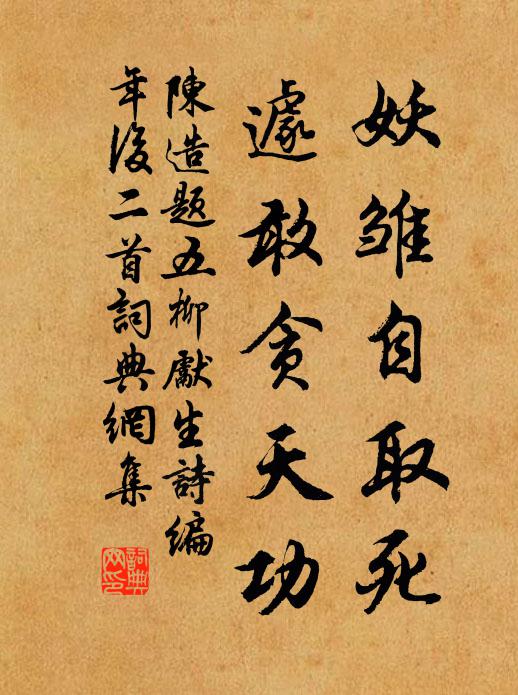 妖雏自取死
遽敢贪天功
陳造题五柳獻生詩编
年後二首詞典網集
詞典網印